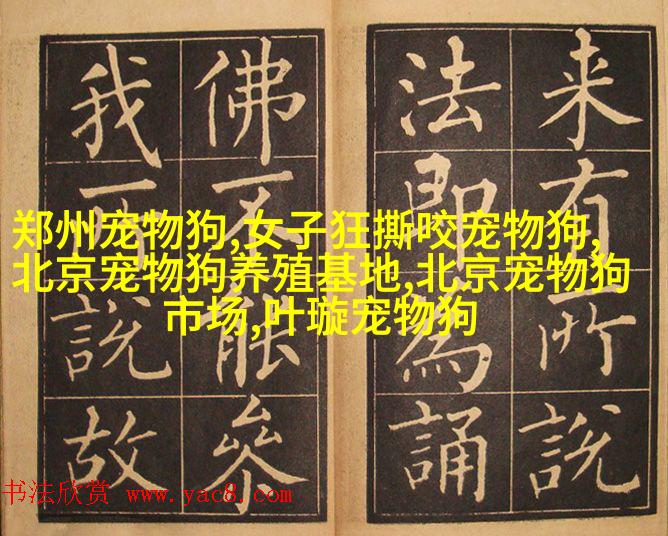 来有所說
法即為誦
佛不能叅
我所說故
郑州宠物狗,女子狂撕咬宠物狗,
北京宠物狗养殖基地,北京宠物狗
市场,叶璇宠物狗
书法欣赏 www.yac8.com